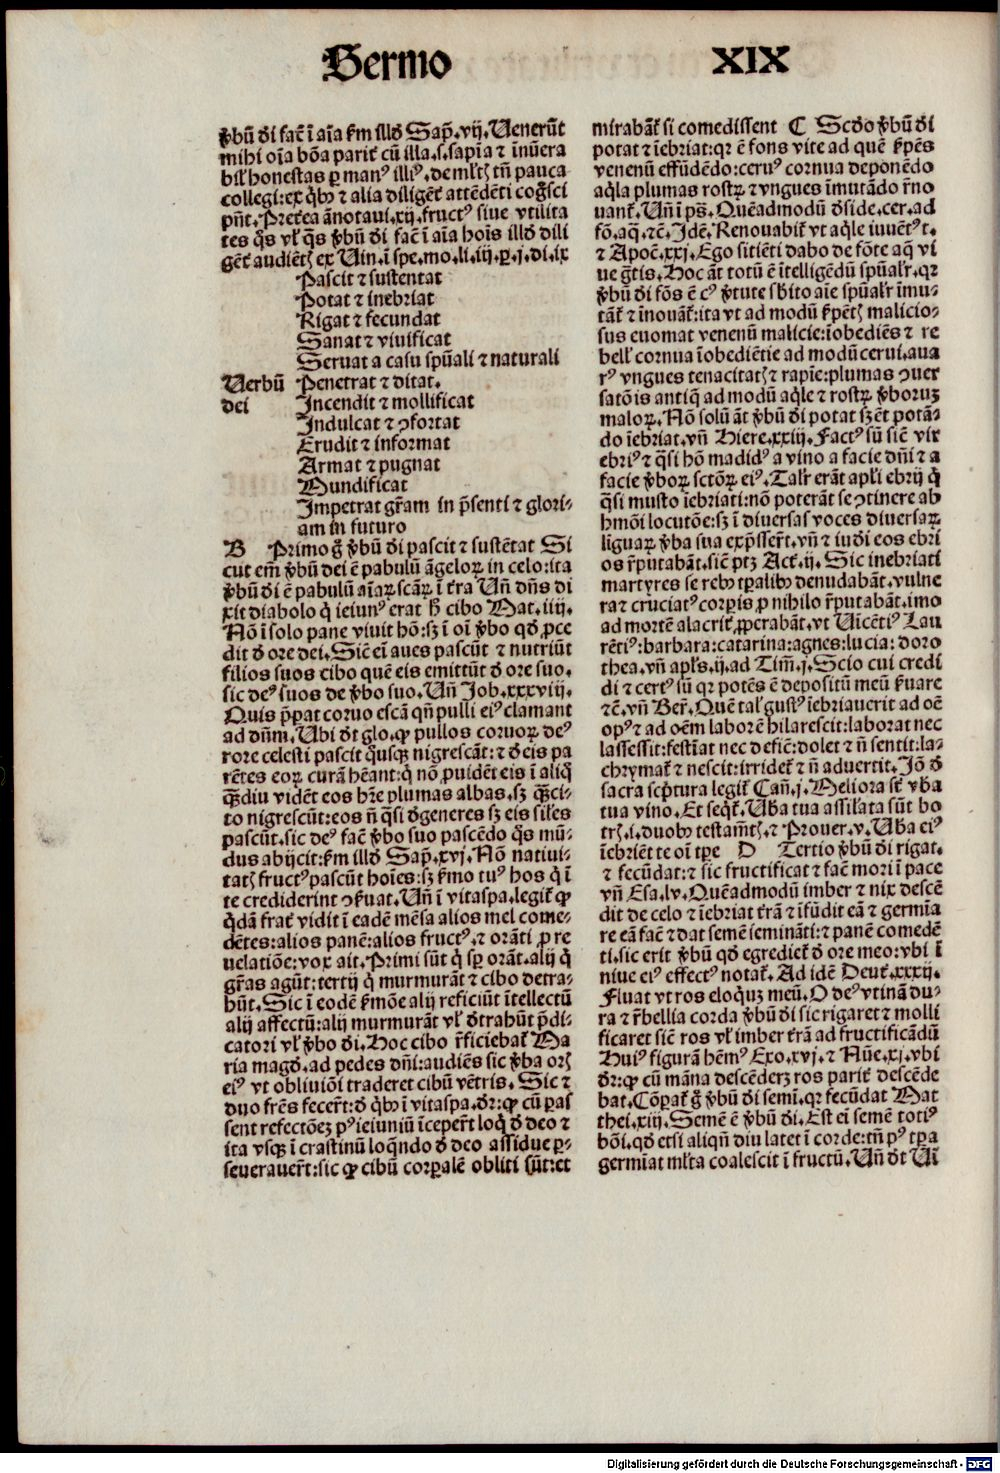 Sermo XIX
v̄bū dī facͭ ī aīa ẜm illꝺ Sap̄.vij. Venerūt
mihi oīa bōa parit̉ cū illa.s.sapīa ⁊ īnūera
bil̉ honestas ꝑ manꝰ illiꝰ. de ml̉tꝭ tn̄ pauca
collegi: ex q̇bꝫ ⁊ alia diligēt̉ attēdēti cog̈sci
pn̄t. Pret̉ea ānotaui.xij. fructꝰ siue vtilita
tes q̄s vl̉ q̄s v̄bū dī facͭ ī aīa hoīs illꝺ dili
gēt̉ audiētꝭ ex Vin. ī spe.mo.li.iij.ꝑ.j.di.ix
Pascit ⁊ sustentat
Potat ⁊ inebriat
Rigat ⁊ fecundat
Sanat ⁊ viuificat
Seruat a casu spūali ⁊ naturali
Verbū Penetrat ⁊ ditat.
dei Incendit ⁊ mollificat
Indulcat ⁊ ꝯfortat
Erudit ⁊ informat
Armat ⁊ pugnat
Mundificat
Impetrat gr̄am in p̄senti ⁊ glori-
am in futuro
B Primo g̊ v̄bū dī pascit ⁊ sustētat Si
cut em̄ v̄bū dei ē pabulū āgeloꝝ in celo: ita
v̄bū dī ē pabulū aīaꝝ scāꝝ ī t̄ra Vn̄ dn̄s di
xit diabolo q̇ ieiunꝰ erat h̄ cibo Mat.iiij.
Nō ī solo pane viuit hō: sꝫ ī oī v̄bo qꝺ ꝓce
dit ꝺ ore dei. Sic̄ eī aues pascūt ⁊ nutriūt
filios suos cibo quē eis emittūt ꝺ ore suo.
sic deꝰ suos de v̄bo suo. Vn̄ Job.xxxviij.
Quis p̄pat coruo escā qn̄ pulli eiꝰ clamant
ad dn̄m. Vbi dt̄ glo. ꝙ pullos coruoꝝ deꝰ
rore celesti pascit q̇usqꝫ nigrescāt: ⁊ ꝺeis pa
rētes eoꝝ curā hēant: q̇ nō ꝓuidēt eis ī aliq̇
q̄ꝫdiu vidēt eos hr̄e plumas albas. sꝫ q̄ꝫci-
to nigrescūt: eos n̄ q̄si ꝺgeneres sꝫ eis sil̉es
pascūt. sic deꝰ facͭ v̄bo suo pascēdo q̄s mū-
dus abijcit: ẜm illꝺ Sap̄.xvj. Nō natiui-
tatꝭ fructꝰ pascūt hoīes: sꝫ ẜmo tuꝰ hos q̇ ī
te crediderint ꝯẜuat. Vn̄ ī vitaspa. legit̉ ꝙ
q̇dā frat̉ vidit ī eadē mēsa alios mel come-
dētes: alios panē: alios fructꝰ. ⁊ orāti ꝓ re
uelatiōe: vox ait. Primi sūt q̇ sꝑ orāt. alij q̇
gr̄as agūt: tertij q̇ murmurāt ⁊ cibo detra-
hūt. Sic ī eodē ẜmōe alij reficiūt ītellectū
alij affectū: alij murmurāt vl̉ ꝺtrahūt p̄di-
catori vl̉ v̄bo dī. Hoc cibo r̄ficiebat̉ Ma
ria magꝺ. ad pedes dn̄i: audiēs sic v̄ba orꝭ
eiꝰ vt obliuiōi traderet cibū vētris. Sic ⁊
duo fr̄es fecer̄t: ꝺ q̇bꝫ ī vitaspa. dr̄: ꝙ cū ꝑas
sent refectōeꝫ pꝰ ieiuniū īceper̄t loq̇ ꝺ deo ⁊
ita vsqꝫ ī crastinū loq̄ndo ꝺ deo assidue ꝑ-
seuerauer̄t: sic ꝙ cibū corꝑalē obliti sūt: et
mirabāt̉ si comedissent C Scꝺo v̄bū dī
potat ⁊ īebriat: qꝛ ē fons vite ad quē ẜpēs
venenū effūdēdo: ceruꝰ cornua deponēdo
aq̇la plumas rostꝝ ⁊ vngues īmutādo r̄no
uant̉. Vn̄ ī ps̄. Quēadmodū ꝺside.cer.ad
fō.aq̄.⁊c̄. Idē. Renouabit̉ vt aq̇le iuuētꝰ t.
⁊ Apoc̄.xxj. Ego sitiēti dabo de fōte aq̄ vi
ue g̈tis. Hoc āt totū ē ītelligēdū spūal̉r. qꝛ
v̄bū dī fōs ē cꝰ v̄tute sb̄ito aīe spūal̉r īmu-
tāt̉ ⁊ īnouāt̉: ita vt ad modū ẜpētꝭ malicio-
sus euomat venenū malicie: īobediēs ⁊ re
bell̉ cornua īobediētie ad modū cerui. aua
rꝰ vngues tenacitatꝭ ⁊ rapīe: plumas ꝯuer
satōis antiq̄ ad modū aq̇le ⁊ rostꝝ v̄boruꝫ
maloꝝ. Nō solū āt v̄bū dī potat sꝫ et̄ potā-
do īebriat. vn̄ Hiere.xxiij. Factꝰ sū sic̄ vir
ebriꝰ ⁊ q̄si hō madidꝰ a vino a facie dn̄i ⁊ a
facie v̄boꝝ sctōꝝ eiꝰ. Tal̉r erāt apl̉i ebrij q̇
q̄si musto īebriati: nō poterāt se ꝯtinere ab
hm̄ōi locutōe: sꝫ ī diuersas voces diuersaꝝ
liguaꝝ v̄ba sua exp̄sser̄t. vn̄ ⁊ iudi eos ebri
os r̄putabāt. sic̄ ptꝫ Act̉.ij. Sic inebriati
martyres se rebꝫ tꝑalibꝫ denudabāt. vulne
ra ⁊ cruciatꝰ corꝑis ꝓ nihilo r̄putabāt. imo
ad mortē alacrit̉ ꝓꝑerabāt. vt Vicētiꝰ Lau
rētiꝰ: barbara: catarina: agnes: lucia: doro
thea. vn̄ apl̉s.ij.ad Tim̄.j. Scio cui credi
di ⁊ certꝰ sū qꝛ potēs ē depositū meū ẜuare
⁊c̄. vn̄ Ber̄. Quē tal̉ gustꝰ īebriauerit ad oē
opꝰ ⁊ ad oēm laborē hilarescit: laborat nec
lassessit: festīat nec deficͭ: dolet ⁊ n̄ sentit: la-
chrymat̉ ⁊ nescit: irridet̉ ⁊ n̄ aduertit. Jō ꝺ
sacra scp̄tura legit̉ Can̄.j. Meliora st̄ vb̄a
tua vino. Et seq̄t̉. Vb̄a tua assilata sūt bo
trꝭ.i.duobꝫ testam̄tꝭ. ⁊ Prouer.v. Vb̄a eiꝰ
īebriēt te oī tꝑe D Tertio v̄bū dī rigat.
⁊ fecūdat: ⁊ sic fructificat ⁊ facͭ mori ī pace
vn̄ Esa.lv. Quēadmodū imber ⁊ nix descē
dit de celo ⁊ īebriat t̄rā ⁊ īfūdit eā ⁊ germīa
re eā facͭ ⁊ dat semē semināti: ⁊ panē comedē
ti. sic erit v̄bū qꝺ egrediet̉ ꝺ ore meo: vbi ī
niue eiꝰ effectꝰ notat̉. Ad idē Deut̉.xxxij.
Fluat vt ros eloq̇uꝫ meū. O deꝰ vtinā du-
ra ⁊ r̄bellia corda v̄bū dī sic rigaret ⁊ molli
ficaret sic̄ ros vl̉ imber t̄rā ad fructificādū
Huiꝰ figurā hēmꝰ Exo.xvj. ⁊ Nūe.xj. vbi
dr̄: ꝙ cū māna descēderꝫ ros parit̉ descēde
bat. Cōꝑat̉ g̊ v̄bū dī semī. qꝛ fecūdat Mat
thei.xiij. Semē ē v̄bū dī. Est eī semē totiꝰ
bōi. qꝺ etsi aliqn̄ diu latet ī corde: tn̄ pꝰ tꝑa
germīat ml̉ta coalescit ī fructū. Vn̄ dt̄ Vī
Digitalisierung gefördert durch die Deutsche Forschungsgemeinschaft - DFG